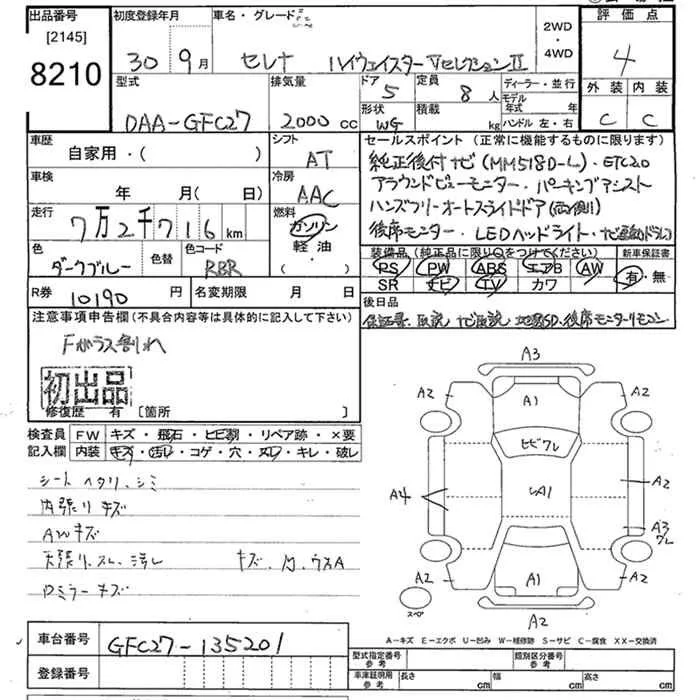 出品番号
[2145]
8210
初度登録年月
30 9月
車名・グレード
セレナ ハイウェイスター VセレクションII
2WD
・
4WD
評価点
4
外装 内装
C C
型式
DAA-GFC27
排気量
2000 cc
ドア 5
定員 8 人
形状 WG
積載 kg
ディーラー・並行
モデル年式 年
ハンドル 左・右
車歴
自家用・( )
シフト
AT
車検
年 月( 日)
冷房
AAC
走行
7万2千716 km
燃料
ガソリン
軽油
・( )
色
ダークブルー
色替
色コード
RBR
R券 10190 円
名変期限 月 日
セールスポイント (正常に機能するものに限ります)
純正後付ナビ(MM518D-L)・ETC2.0
アラウンドビューモニター・パーキングアシスト
ハンズフリーオートスライドドア(両側)
後席モニター・LEDヘッドライト・ナビ連動ドラレコ
装備品 (純正品に限り○をつけて下さい)
PS PW ABS エアB AW
SR ナビ TV カワ
新車保証書
有・無
後日品
保証書、取説、ナビ取説、地図SD、後席モニターリモコン
注意事項申告欄(不具合内容等は具体的に記入して下さい)
Fガラス割れ
初出品
修復歴 有 [箇所 ]
検査員記入欄
FW キズ・飛石・ヒビ割・リペア跡・×要
内装 キズ・汚レ・コゲ・穴・スレ・キレ・破レ
シート ヘタリ、シミ
内張り キズ
AWキズ
天張り、スレ、汚レ
Dミラーキズ
A3
A2 A1 A2
ヒビワレ
A4 A1 A2
A3
ワレ
A2 A1 A2
スペア
A2
A-キズ E-エクボ U-凹み W-補修跡 S-サビ C-腐食 XX-交換済
車台番号 GFC27-135201
登録番号
型式指定番号 参考
類別区分番号 参考
車庫証明用 参考
長さ cm 幅 cm 高さ cm